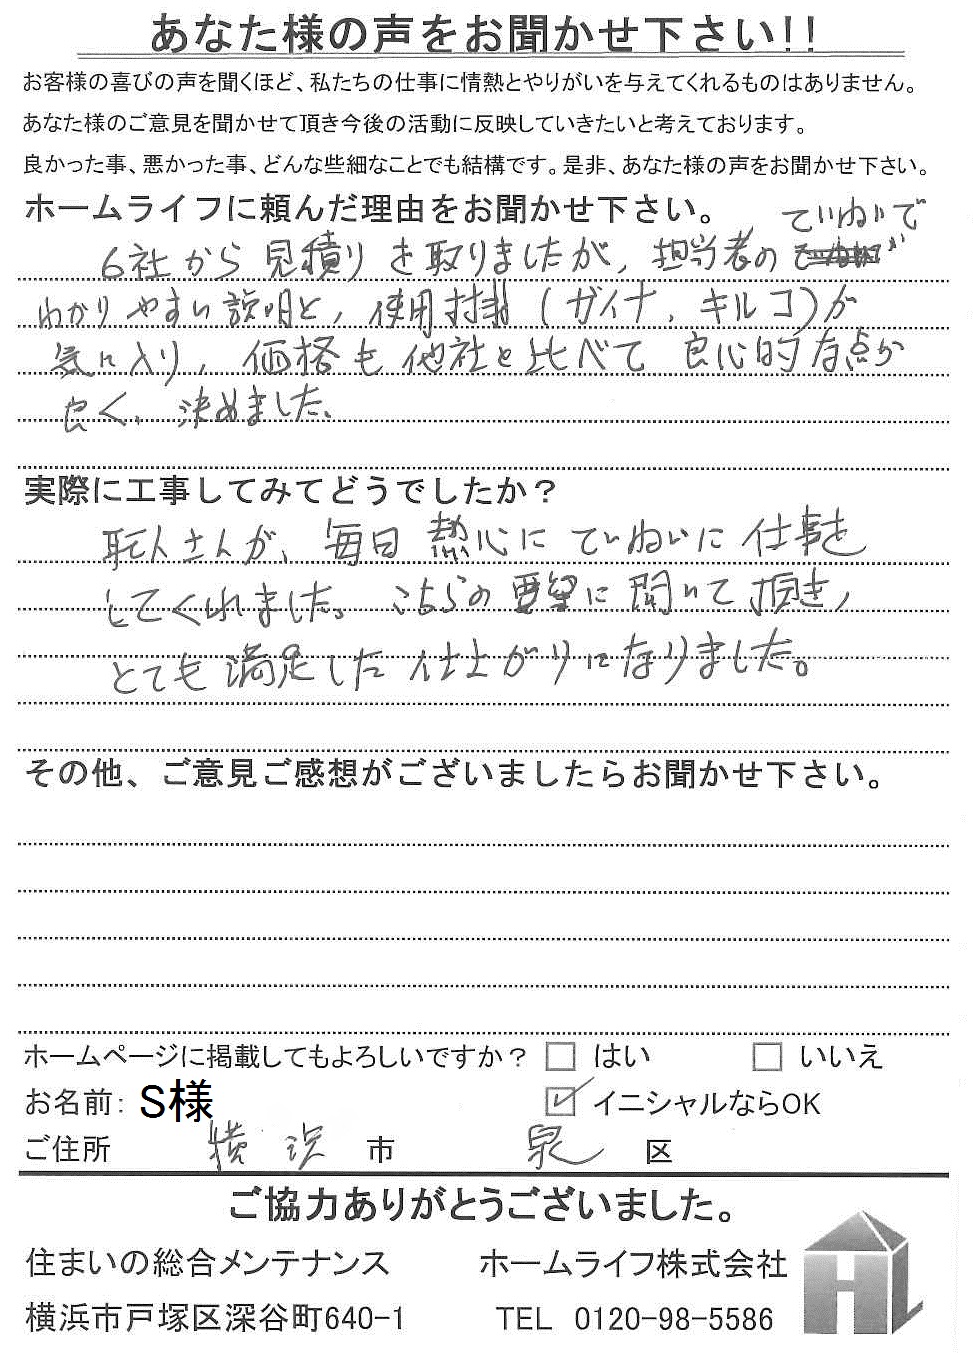 あなた様の声をお聞かせ下さい!!
お客様の喜びの声を聞くほど、私たちの仕事に情熱とやりがいを与えてくれるものはありません。
あなた様のご意見を聞かせて頂き今後の活動に反映していきたいと考えております。
良かった事、悪かった事、どんな些細なことでも結構です。是非、あなた様の声をお聞かせ下さい。
ホームライフに頼んだ理由をお聞かせ下さい。
ていねいで
6社から見積りを取りましたが、担当者の
わかりやすい説明と、使用材料(ガイナ、キルコ)が
気に入り、価格も他社と比べて良心的な点が
良く、決めました。
実際に工事してみてどうでしたか?
職人さんが、毎日熱心にていねいに仕事を
してくれました。こちらの要望に聞いて頂き、
とても満足した仕上がりになりました。
その他、ご意見ご感想がございましたらお聞かせ下さい。
ホームページに掲載してもよろしいですか? □ はい □ いいえ
お名前: S様 ☑ イニシャルならOK
ご住所 横浜 市 泉 区
ご協力ありがとうございました。
住まいの総合メンテナンス ホームライフ株式会社
横浜市戸塚区深谷町640-1 TEL 0120-98-5586
HL